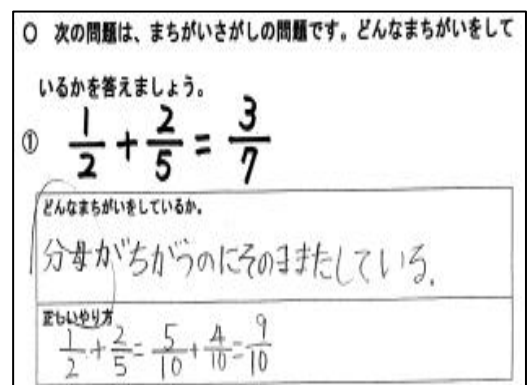 ○ 次の問題は、まちがいさがしの問題です。どんなまちがいをして
いるかを答えましょう。
① 1/2 + 2/5 = 3/7
どんなまちがいをしているか。
分母がちがうのにそのままたしている。
正しいやり方
1/2 + 2/5 = 5/10 + 4/10 = 9/10